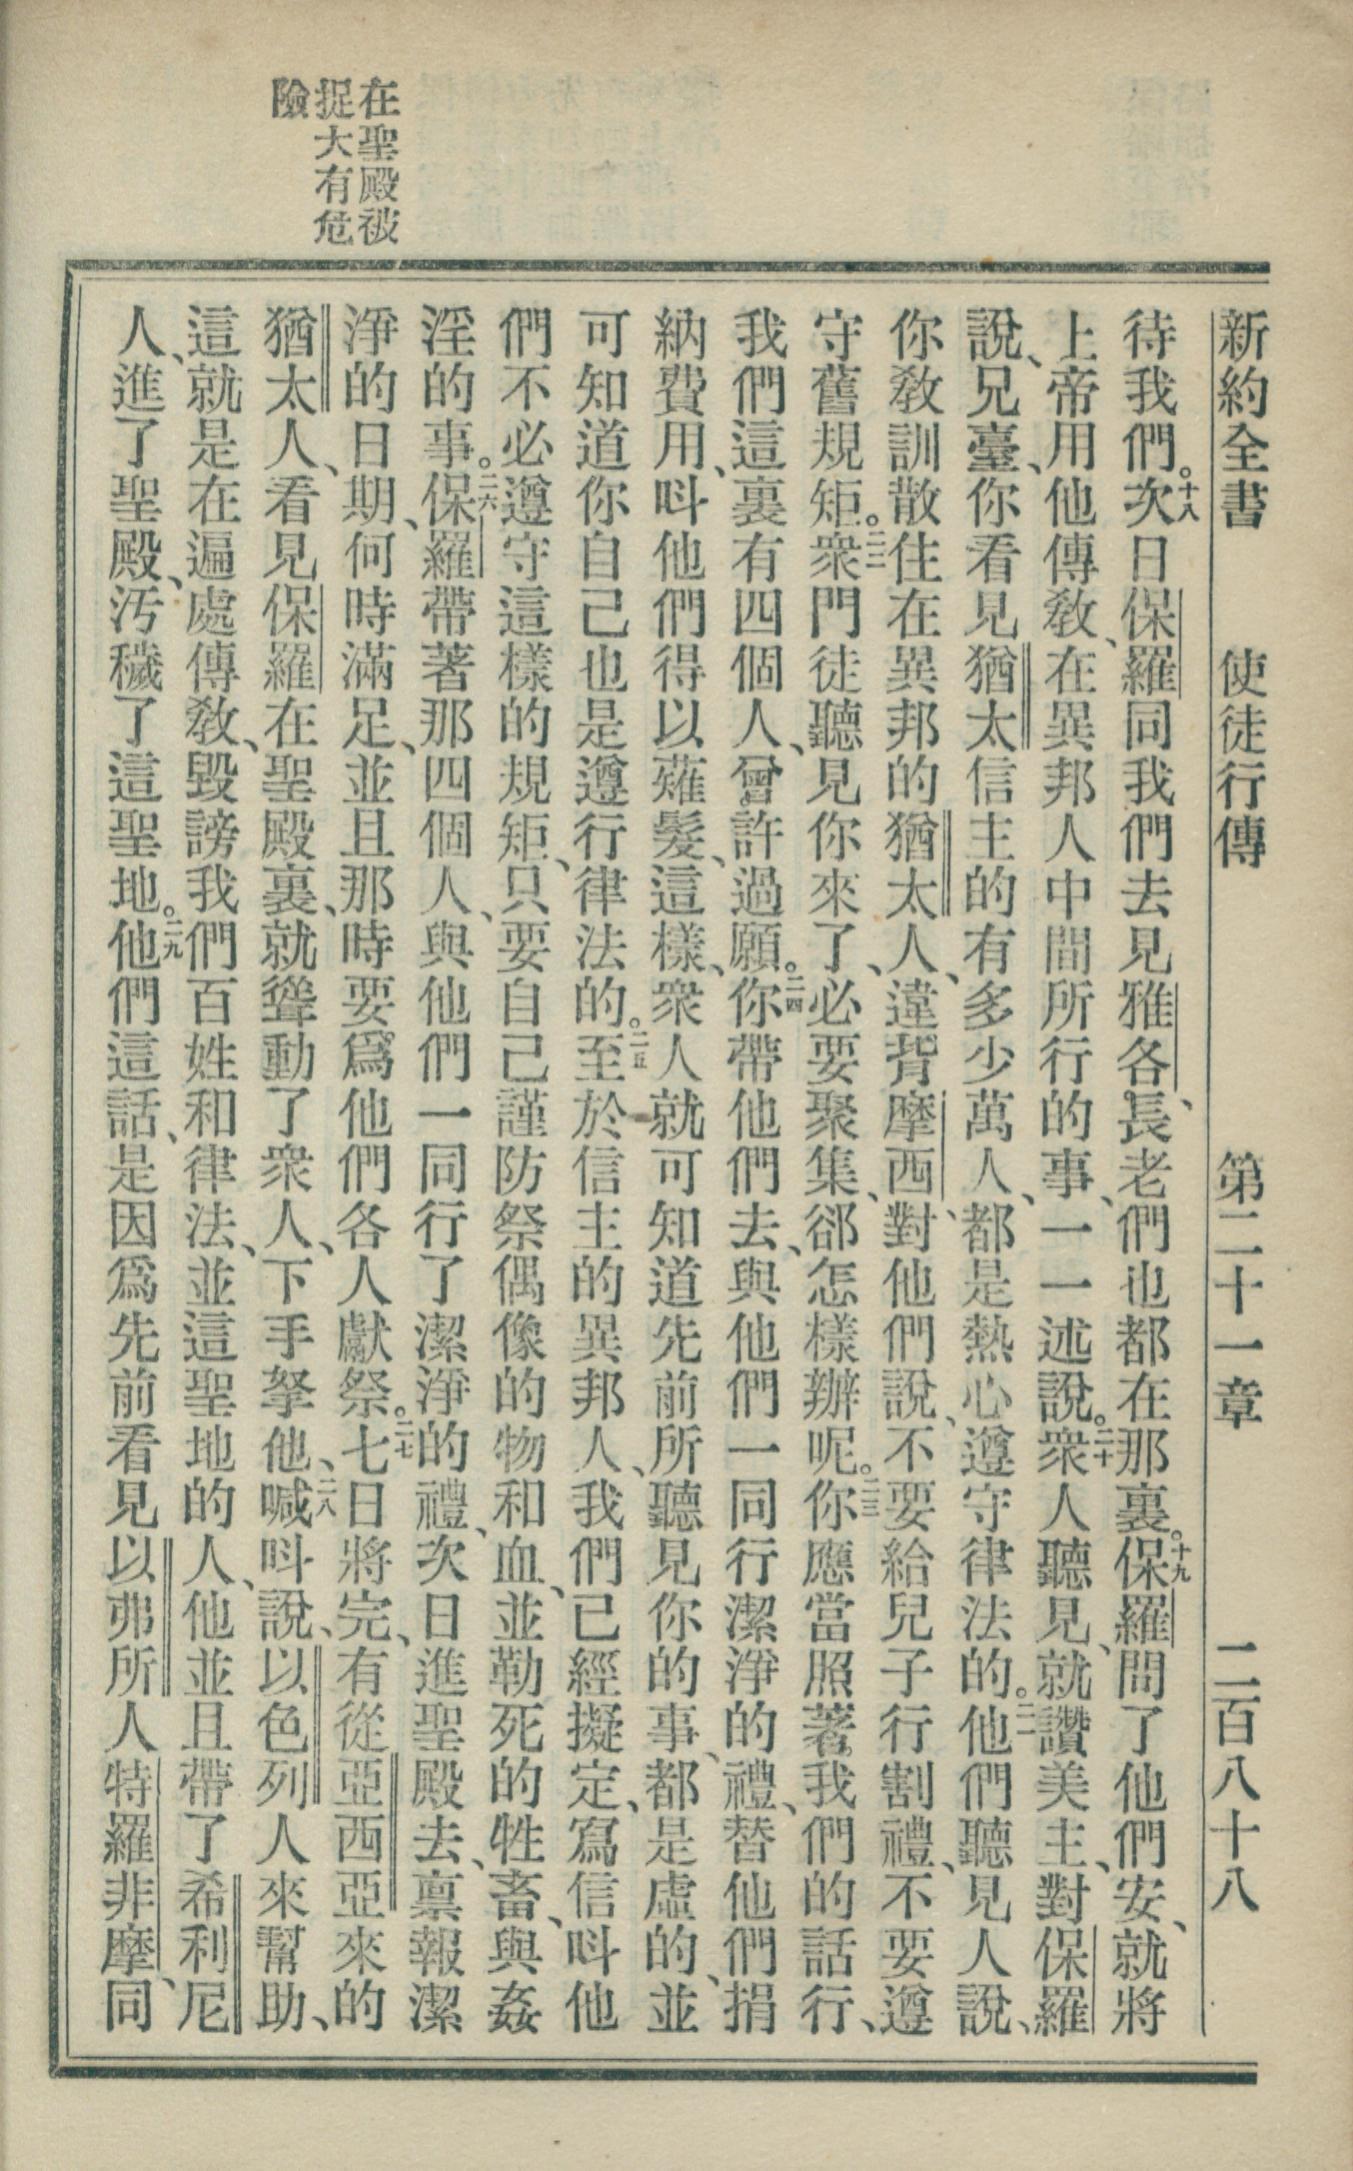 新約全書　使徒行傳　第二十一章　二百八十八
待我們。十八次日保羅同我們去見雅各、長老們也都在那裏。十九保羅問了他們安、就將
上帝用他傳敎、在異邦人中間所行的事、一一述說。二十衆人聽見、就讚美主、對保羅
說、兄臺、你看見猶太信主的有多少萬人、都是熱心遵守律法的。二一他們聽見人說、
你敎訓散住在異邦的猶太人、違背摩西、對他們說、不要給兒子行割禮、不要遵
守舊規矩。二二衆門徒聽見你來了、必要聚集、郤怎樣辦呢。二三你應當照著我們的話行、
我們這裏有四個人、曾許過願。二四你帶他們去、與他們一同行潔淨的禮、替他們捐
納費用、呌他們得以薙髮、這樣、衆人就可知道先前所聽見你的事、都是虛的、並
可知道你自己也是遵行律法的。二五至於信主的異邦人、我們已經擬定、寫信呌他
們不必遵守這樣的規矩、只要自己謹防祭偶像的物和血、並勒死的牲畜、與姦
淫的事。二六保羅帶著那四個人、與他們一同行了潔淨的禮、次日進聖殿去、稟報潔
淨的日期、何時滿足、並且那時要爲他們各人獻祭。二七七日將完、有從亞西亞來的
猶太人、看見保羅在聖殿裏、就聳動了衆人、下手拏他、二八喊呌說、以色列人來幫助、
這就是在遍處傳敎、毀謗我們百姓和律法、並這聖地的人、他並且帶了希利尼
人、進了聖殿、汚穢了這聖地。二九他們這話、是因爲先前看見以弗所人特羅非摩、同
在聖殿被
捉大有危
險